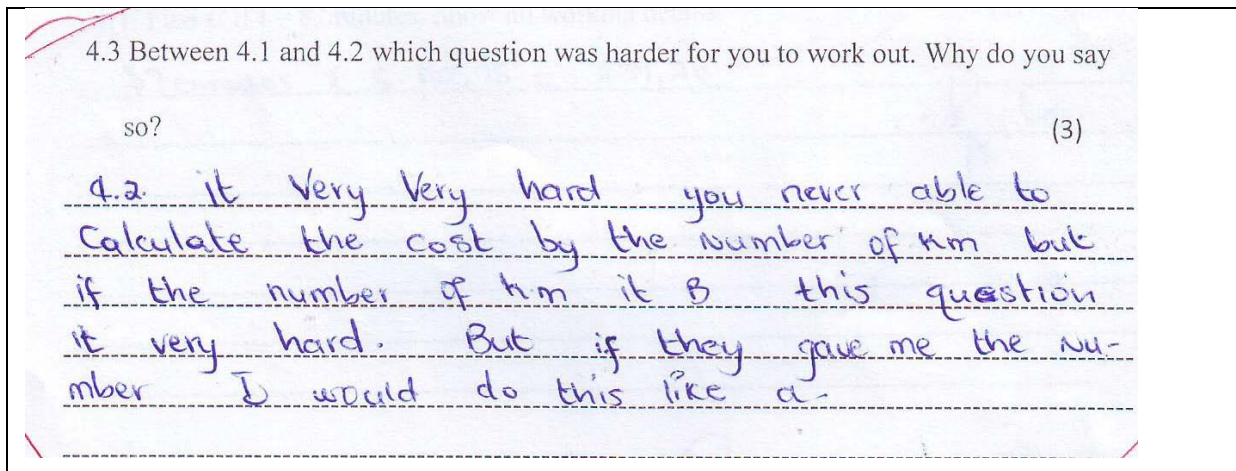 4.3 Between 4.1 and 4.2 which question was harder for you to work out. Why do you say
so? (3)
4.2. it Very Very hard you never able to
Calculate the cost by the number of km but
if the number of km it B this question
it very hard. But if they gave me the nu-
mber I would do this like a-